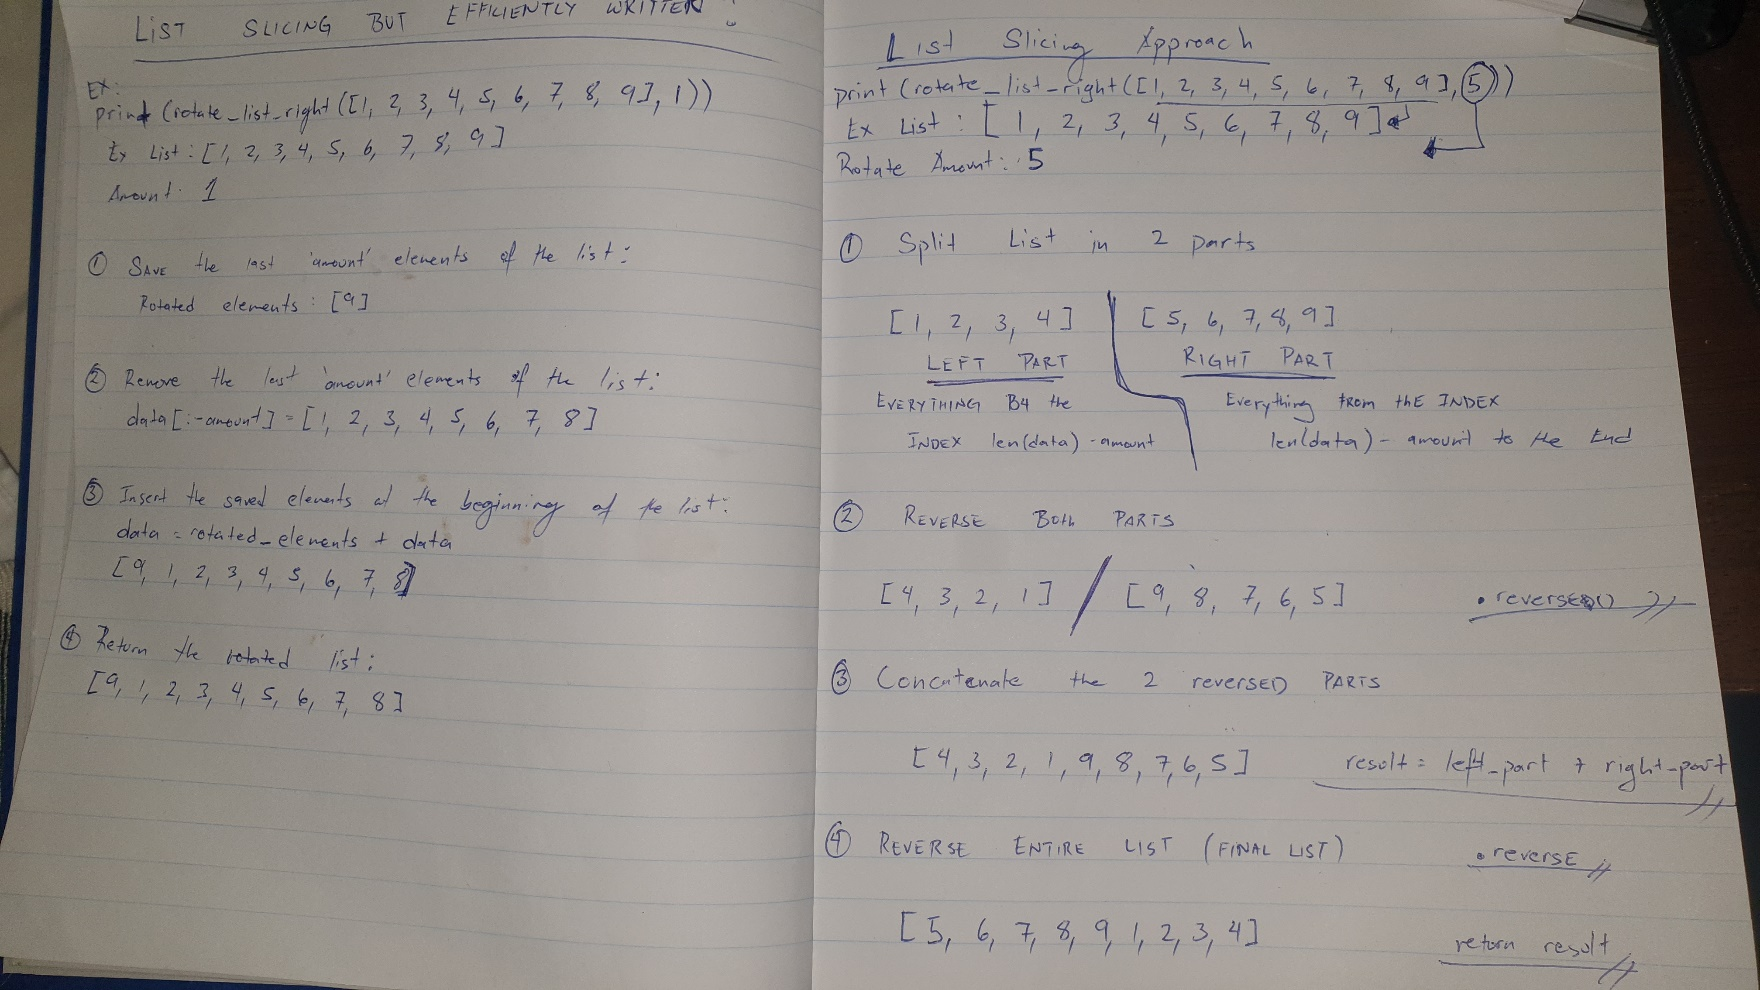 LIST SLICING BUT EFFICIENTLY WRITTEN:
EX:
print (rotate_list_right ([1, 2, 3, 4, 5, 6, 7, 8, 9], 1))
Ex List: [1, 2, 3, 4, 5, 6, 7, 8, 9]
Amount: 1
① SAVE the last 'amount' elements of the list:
Rotated elements: [9]
② Remove the last 'amount' elements of the list:
data[:-amount] = [1, 2, 3, 4, 5, 6, 7, 8]
③ Insert the saved elements at the beginning of the list:
data = rotated_elements + data
[9, 1, 2, 3, 4, 5, 6, 7, 8]
④ Return the rotated list:
[9, 1, 2, 3, 4, 5, 6, 7, 8]
List Slicing Approach
print (rotate_list_right([1, 2, 3, 4, 5, 6, 7, 8, 9], 5))
Ex List: [1, 2, 3, 4, 5, 6, 7, 8, 9]
Rotate Amount: 5
① Split List in 2 parts
[1, 2, 3, 4] [5, 6, 7, 8, 9]
LEFT PART RIGHT PART
EVERYTHING B4 the Everything FROM thE INDEX
INDEX len(data) - amount len(data) - amount to the End
② REVERSE Both PARTS
[4, 3, 2, 1] / [9, 8, 7, 6, 5] • reversed()
③ Concatenate the 2 reverSED PARTS
[4, 3, 2, 1, 9, 8, 7, 6, 5] result = left_part + right_part
④ REVERSE ENTIRE LIST (FINAL LIST) • reversE
[5, 6, 7, 8, 9, 1, 2, 3, 4] return result